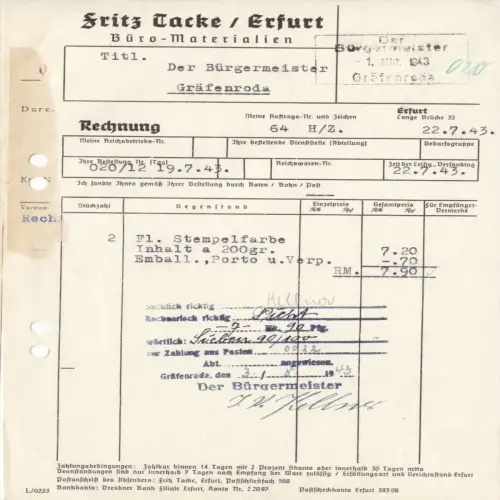 Fritz Tacke / Erfurt
Büro-Materialien
Titl.
Der Bürgermeister
Gräfenroda
Der
Bürgermeister
1. 1943
Gräfenroda
020
Meine Auftrags-Nr. und Zeichen
Erfurt
Lange Brücke 35
Rechnung
64 H/Z.
22.7.43.
Meine Reichsbetriebs-Nr.
Ihre bestellende Dienststelle (Abteilung)
Bedarfsgruppe
Ihre Bestellung Nr. (Tag)
Reichswaren-Nr.
020/12 19.7.43.
22.7.43.
Ich sandte Ihnen gemäß Ihrer Bestellung durch Boten / Bahn / Post
Stückzahl
Gegenstand
Einzelpreis
Gesamtpreis
Für Empfänger-
Vermerke
RM Rpf
RM Rpf
2 Fl. Stempelfarbe
Inhalt a 200gr. 7.20
Emball.,Porto u.Verp. -.70
RM. 7.90
Sachlich richtig Kellner
Rechnerisch richtig
-7- RM. 90 Pfg.
wörtlich: Sieben 90/100
zur Zahlung aus Posten 0022
Abt. angewiesen.
Gräfenroda, den 3/ 1943
Der Bürgermeister
Kellner
Zahlungsbedingungen: Zahlbar binnen 14 Tagen mit 2 Prozent Skonto oder innerhalb 30 Tagen netto
Beanstandungen sind nur innerhalb 7 Tagen nach Empfang der Ware zulässig / Erfüllungsort und Gerichtsstand Erfurt
Postanschrift des Absenders: Fritz Tacke, Erfurt, Postschließfach 568
L/0223
Bankkonto: Dresdner Bank Filiale Erfurt, Konto Nr. 22097
Postscheckkonto Erfurt 19308